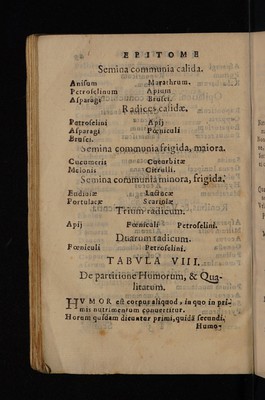 EPITOME
Semina communia calida.
Anisum Marathrum.
Petroselinum Apium
Asparagi Brusci.
Radices calidæ.
Petroselini Apij
Asparagi Fœniculi
Brusci.
Semina communia frigida, maiora.
Cucumeris Cucurbitæ
Melonis Citrulli.
Semina communia minora, frigida.
Endiuiæ Lactucæ
Portulacæ Scariolæ
Trium radicum.
Apij Fœniculi Petroselini.
Duarum radicum.
Fœniculi Petroselini.
TABVLA VIII.
De partitione Humorum, & Qua-
litatum.
HVMOR est corpus aliquod, in quo in pri-
mis nutrimentum conuertitur.
Horum quidem dicuntur primi, quidā secundi.
Humo-